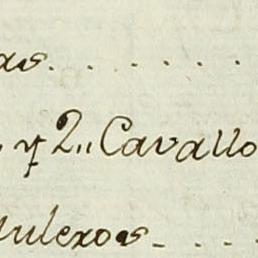 as. . . . . . .
y 2,, Cavallo
uleros_ . . .